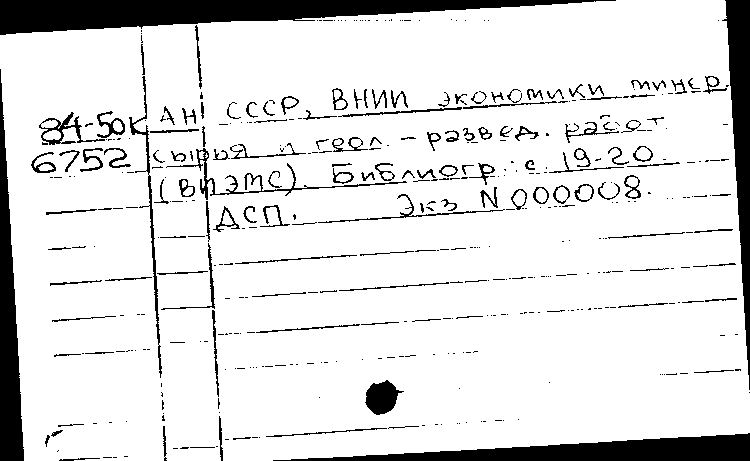 84-50К АН СССР, ВНИИ экономики минер.
6752 сырья и геол.-развед. работ
(ВИЭМС). Библиогр.: с. 19-20.
ДСП. Экз N 000008.